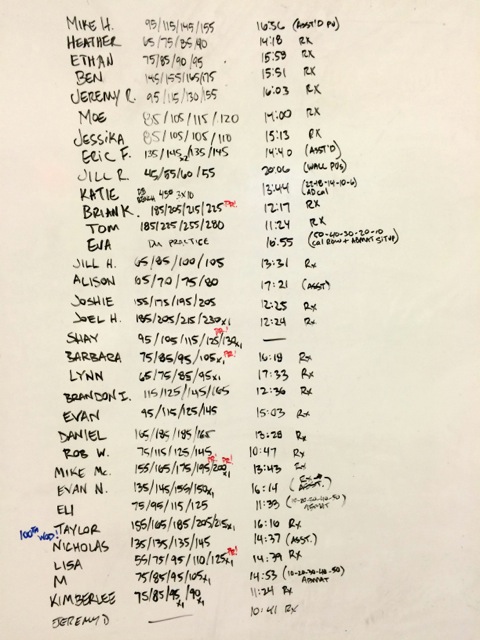 MIKE H. 95/115/145/155 16:56 (ASST'D PU)
HEATHER 65/75/85/90 14:18 RX
ETHAN 75/85/90/95 15:58 RX
BEN 145/155/165/175 15:51 RX
JEREMY R. 95/115/130/155 16:03 RX
MOE 85/105/115/120 14:00 RX
JESSIKA 85/105/105/110 15:13 RX
ERIC F. 135/145x2/135/145 14:40 (ASST'D)
JILL R. 45/55/60/55 20:06 (WALL PUS)
KATIE DB BENCH 45# 3x10 13:44 (22-18-14-10-6) AD cal
BRIAN K. 185/205/215/225 PR! 12:17 RX
TOM 185/225/255/280 11:24 RX
EVA DU PRACTICE 16:55 (50-40-30-20-10 cal ROW + ABMAT SITUP)
JILL H. 65/85/100/105 13:31 Rx
ALISON 65/70/75/80 17:21 (ASST)
JOSHIE 155/175/195/205 12:25 Rx
JOEL H. 185/205/215/230x1 12:24 Rx
SHAY 95/105/115/125/130x1 PR! —
BARBARA 75/85/95/105x1 PR! 16:18 Rx
LYNN 65/75/85/95x1 17:33 Rx
BRANDON I. 115/125/145/165 12:36 Rx
EVAN 95/115/125/145 15:03 Rx
DANIEL 165/185/185/165 13:28 Rx
ROB W. 75/115/125/145 10:47 Rx
MIKE MC. 155/165/175/195/200x1 PR! PR! 13:43 Rx
EVAN N. 135/145/155/150x1 16:14 (ASST.)
ELI 75/95/115/125 11:33 (10-20-30-40-50) ABMAT
100TH WOD! TAYLOR 155/165/185/205/215x1 16:16 Rx
NICHOLAS 135/135/135/145 14:37 (ASST.)
LISA 55/75/95/110/125x1 PR! 14:39 Rx
M 75/85/95/105x1 14:53 (10-20-30-40-50) ABMAT
KIMBERLEE 75/85/95x1/90x1 11:24 Rx
JEREMY D — 10:41 RX